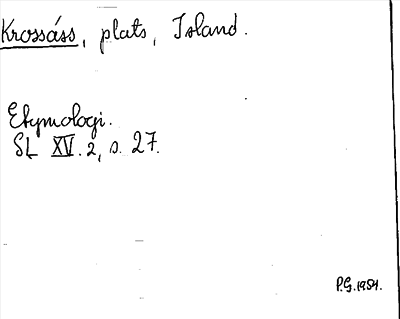 Krossáss, plats, Island.
Etymologi.
SL XV. 2, s. 27.
P.G. 1954.